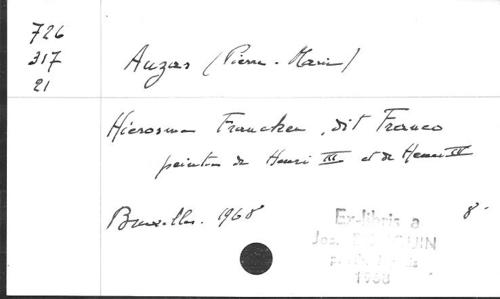 726
317
21
Auzas (Pierre-Marie)
Hierosme Francken, dit Franco
peintre de Henri III et de Henri IV
Bruxelles. 1968
8°
Ex-libris a
Jos.
1968